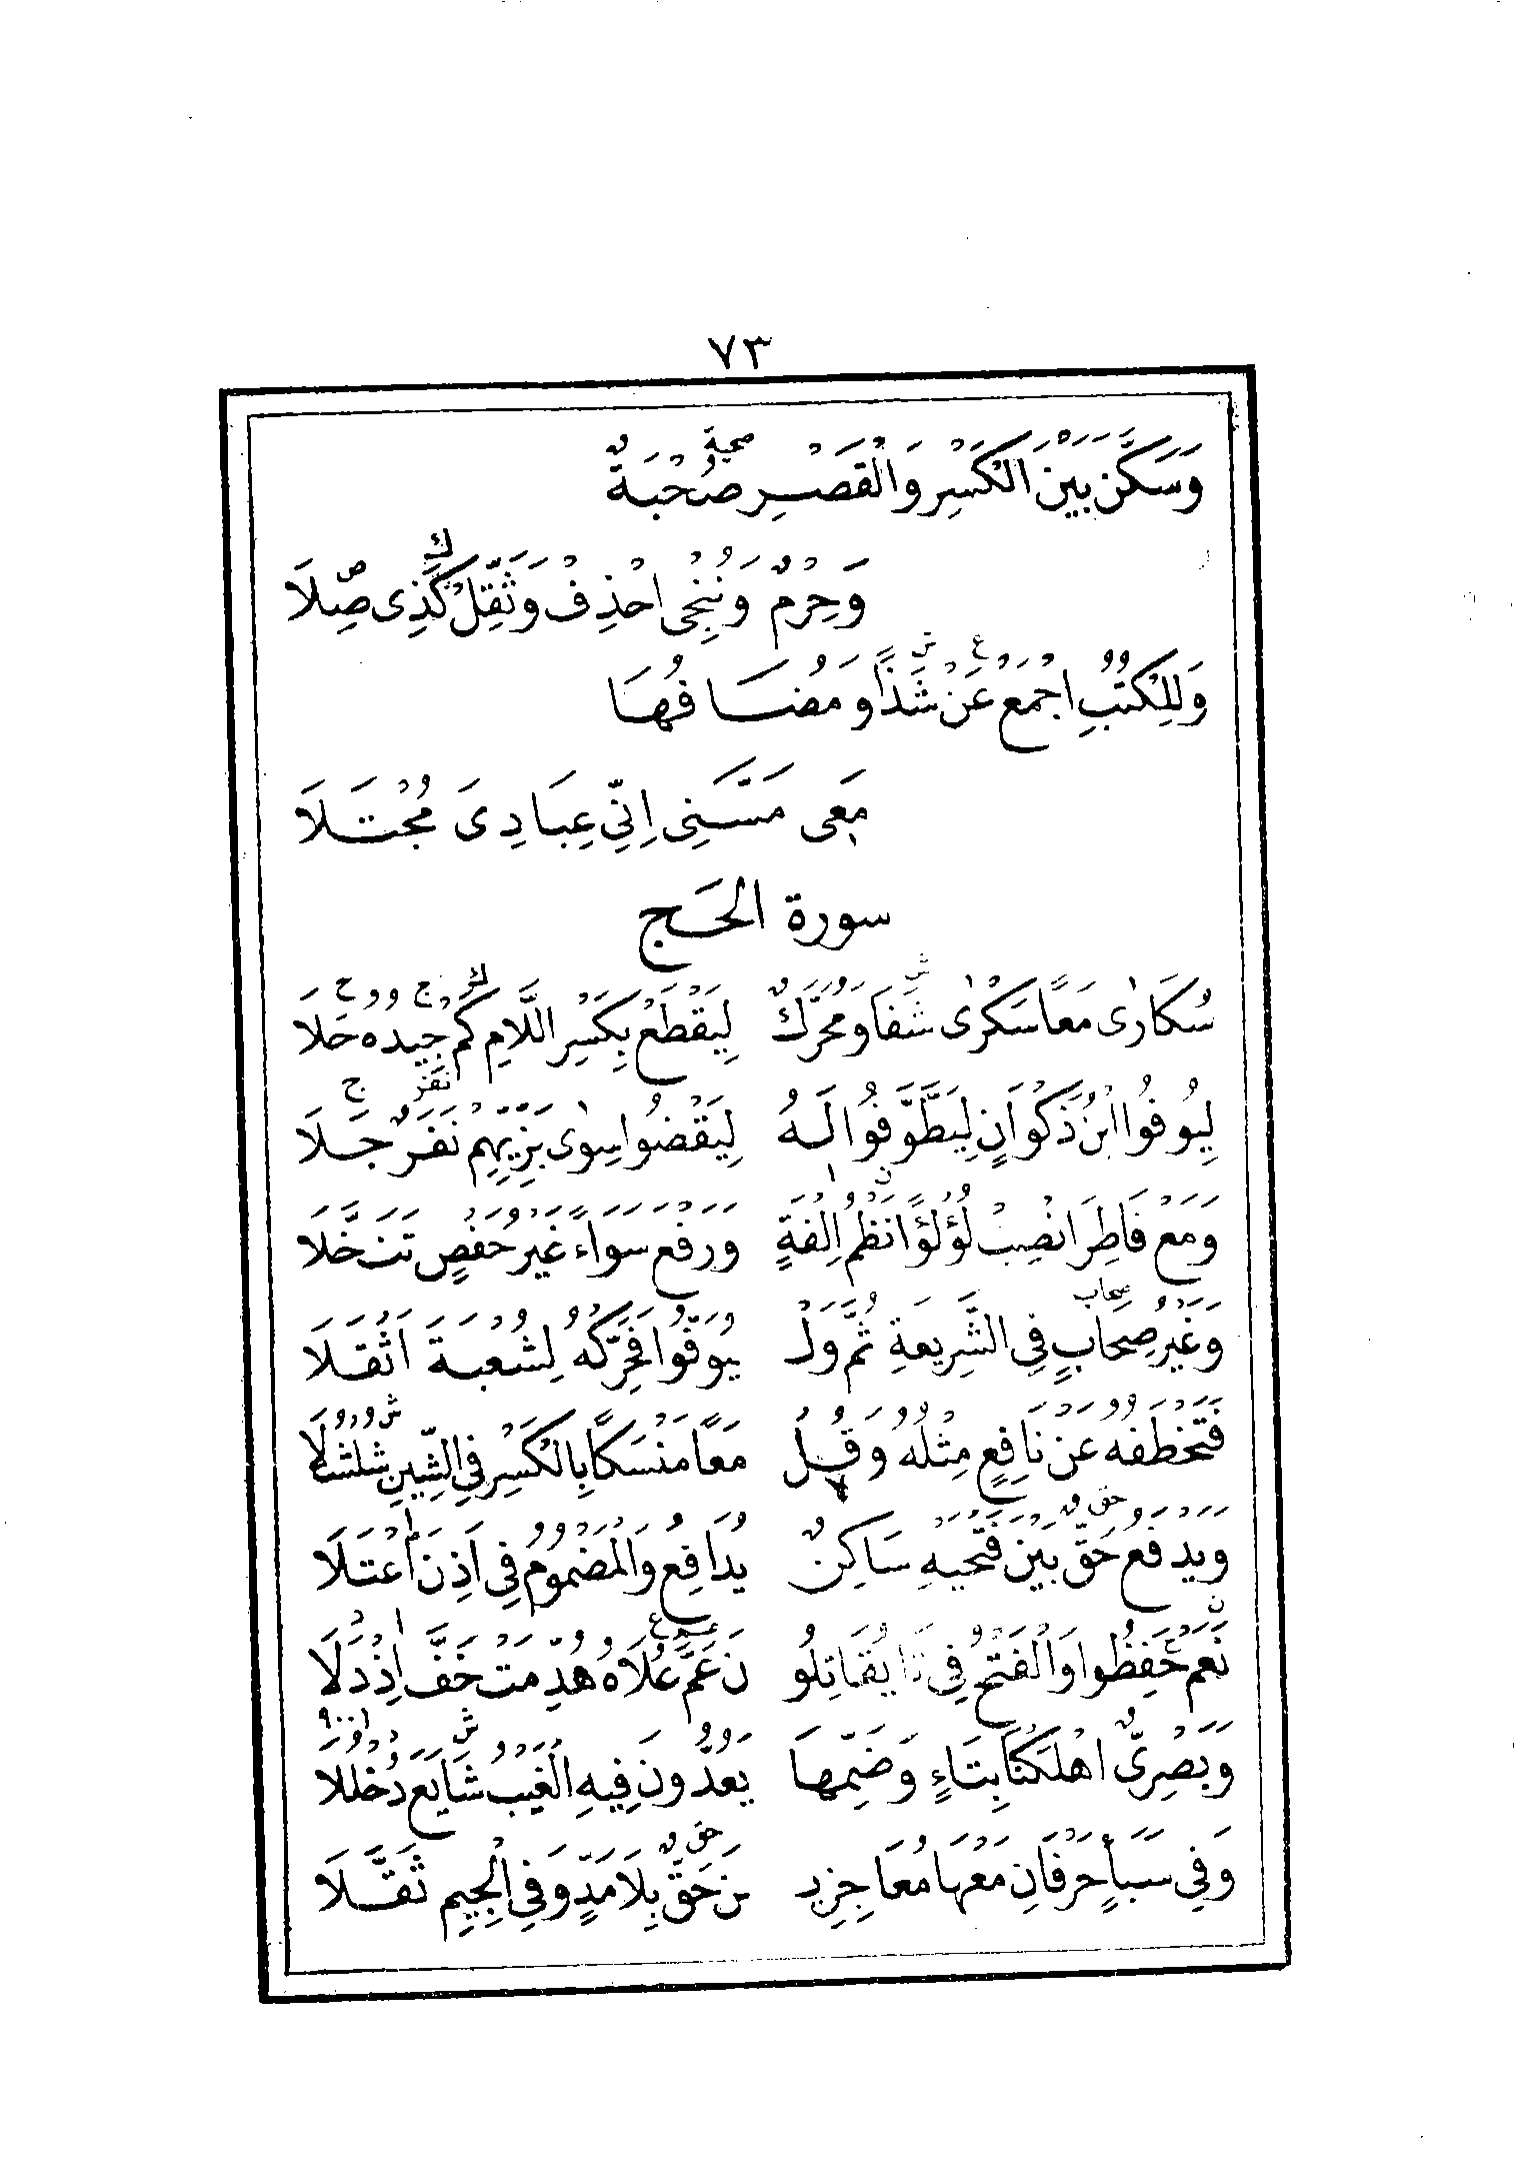 ٧٣
وَسَكَّنَ بَيْنَ الْكَسْرِ وَالْقَصْرِ صُحْبَةٌ
وَحِرْمٌ وَنُنْجِى احْذِفْ وَثَقِّلْ كَذِى صِلَا
وَلِلْكُتُبِ اجْمَعْ عَنْ شَذًا وَمُضَافُهَا
مَعِى مَسَّنِى اِنِّى عِبَادِىَ مُجْتَلَا
سورة الحَج
سُكَارٰى مَعًا سَكْرٰى شَفَا وَمُحَرَّكٌ لِيَقْطَعْ بِكَسْرِ اللَّامِ كَمْ جِيدُهُ حَلَا
لِيُوفُوا ابْنُ ذَكْوَانٍ لِيَطَّوَّفُوا لَهُ لِيَقْضُوا سِوٰى بَزِّيِّهِمْ نَفَرٌ جَلَا
وَمَعْ فَاطِرَ انْصِبْ لُؤْلُؤًا نَظْمُ اِلْفَةٍ وَرَفْعَ سَوَاءً غَيْرُ حَفْصٍ تَنَخَّلَا
وَغَيْرُ صِحَابٍ فِى الشَّرِيعَةِ ثُمَّ وَلْ يُوَفُّوا فَحَرِّكْهُ لِشُعْبَةَ اَثْقَلَا
فَتَخْطَفُهُ عَنْ نَافِعٍ مِثْلُهُ وَقُلْ مَعًا مَنْسَكًا بِالْكَسْرِ فِى الشِّينِ شُلْشُلَا
وَيَدْفَعُ حَقٌّ بَيْنَ فَتْحَيْهِ سَاكِنٌ يُدَافِعُ وَالْمَضْمُومُ فِى اَذِنَ اعْتَلَا
نَعَمْ حَفِظُوا وَالْفَتْحُ فِى تَا يُقَاتِلُو نَ عَمَّ عُلَاهُ هُدِّمَتْ خَفَّ اِذْ دَلَا
وَبَصْرِىٌّ اَهْلَكْنَا بِتَاءٍ وَضَمِّهَا يَعُدُّونَ فِيهِ الْغَيْبُ شَايَعَ دُخْلُلَا
وَفِى سَبَأٍ حَرْفَانِ مَعْهَا مُعَاجِزِيـ ـنَ حَقٌّ بِلَا مَدٍّ وَفِى الْجِيمِ ثَقَّلَا